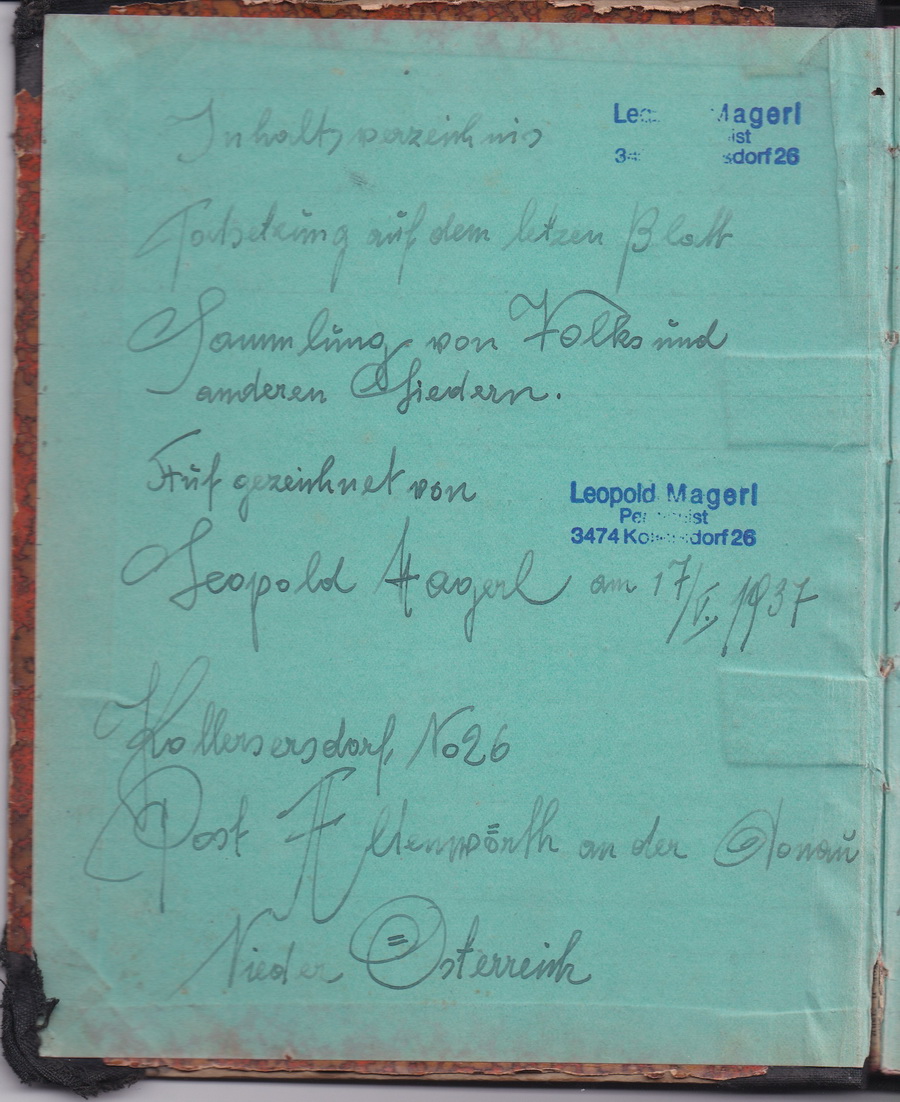 Inhaltsverzeichnis
Leo Magerl
ist
34 sdorf 26
Fortsetzung auf dem letzen Blatt
Sammlung von Volks und
anderen Liedern.
Aufgezeichnet von
Leopold Magerl
3474 Ko dorf 26
Leopold Magerl am 17/V. 1937
Kollersersdorf, No 26
Post Altenwörth an der Donau
Nieder Österreich